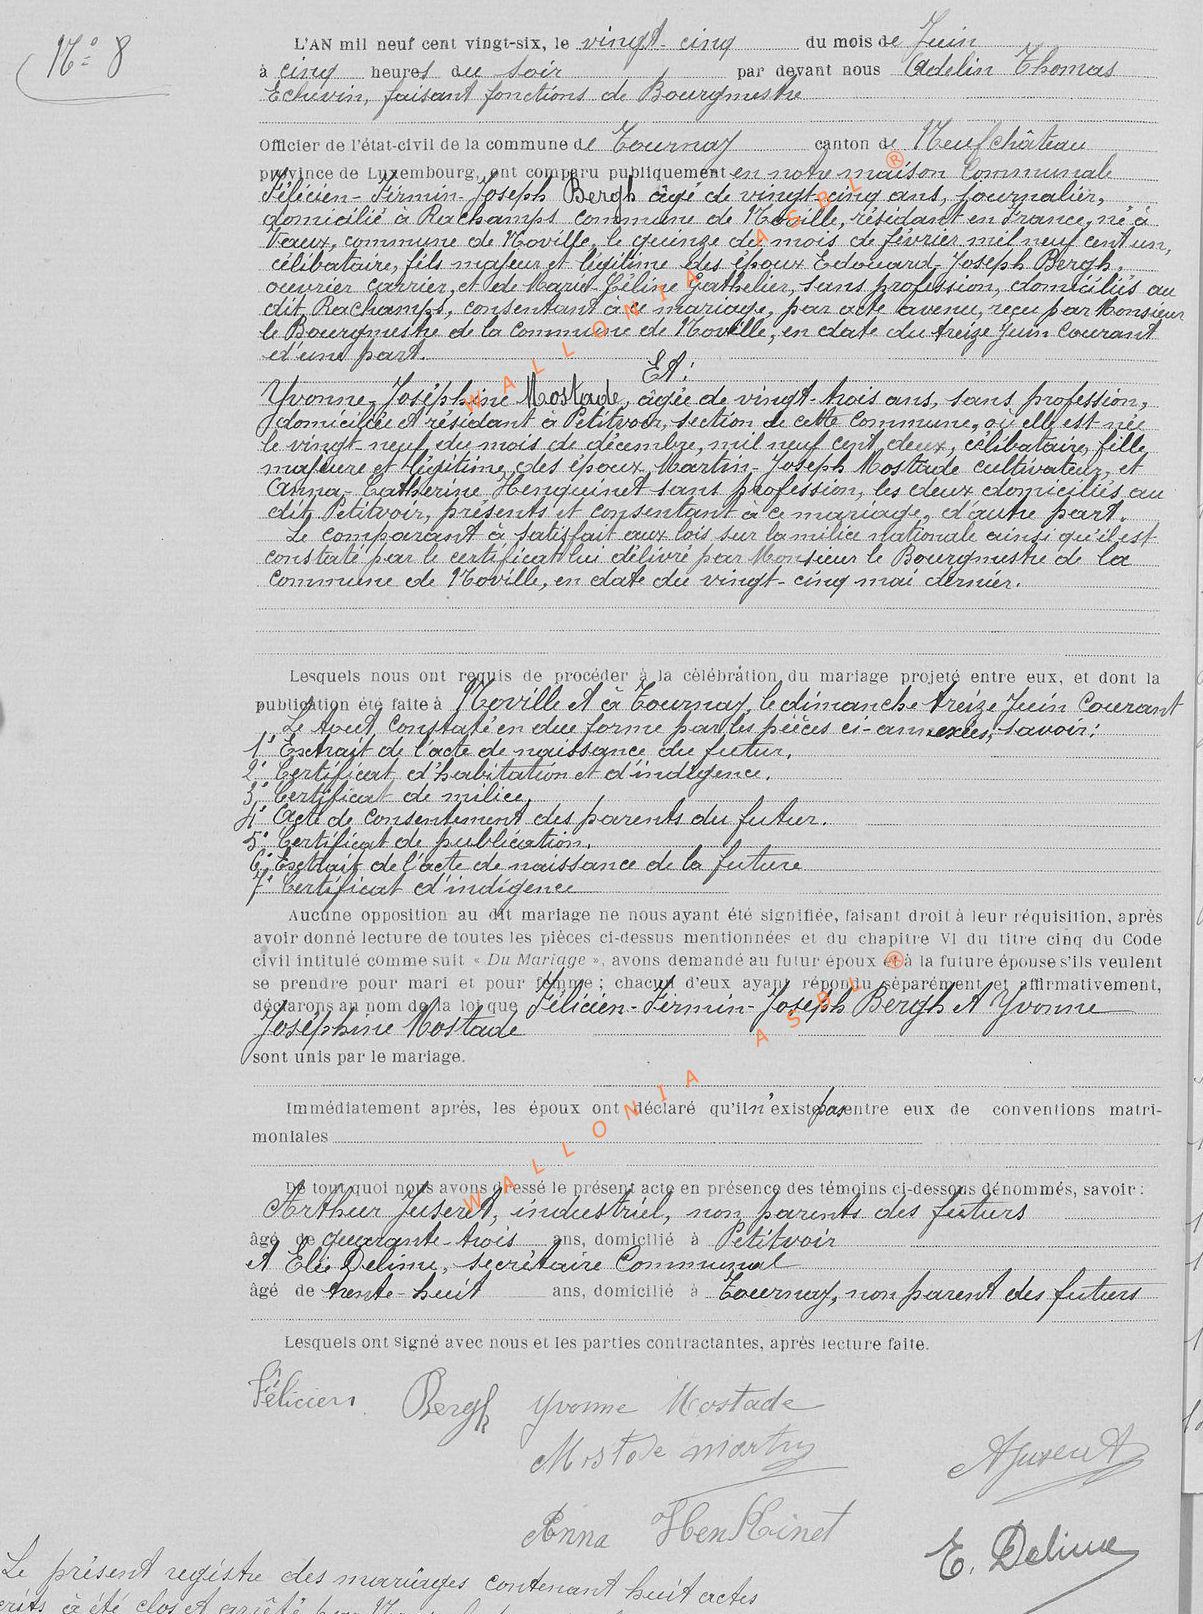 N° 8
L'AN mil neuf cent vingt-six, le vingt-cinq du mois de Juin
à cinq heures du soir par devant nous Adelin Thomas
Echevin, faisant fonctions de Bourgmestre
Officier de l'état-civil de la commune de Tournay canton de Neufchâteau
province de Luxembourg, ont comparu publiquement en notre maison Communale
Félicien-Firmin-Joseph Bergh âgé de vingt-cinq ans, journalier,
domicilié à Rachamps commune de Noville, résidant en France, né à
Vaux, commune de Noville, le quinze du mois de février mil neuf cent un,
célibataire, fils majeur et légitime des époux Edouard-Joseph Bergh,
ouvrier carrier, et de Marie-Céline Gathelier, sans profession, domiciliés au
dit Rachamps, consentant à ce mariage, par acte avenu, reçu par Monsieur
le Bourgmestre de la Commune de Noville, en date du treize Juin Courant
d'une part.
Et:
Yvonne-Joséphine Mostade, âgée de vingt-trois ans, sans profession,
domiciliée et résidant à Petitvoir, section de cette Commune, où elle est née
le vingt-neuf du mois de décembre, mil neuf cent deux, célibataire, fille
majeure et légitime des époux Martin-Joseph Mostade cultivateur, et
Anna-Catherine Henquinet sans profession, les deux domiciliés au
dit Petitvoir, présents et consentant à ce mariage, d'autre part.
Le comparant à satisfait aux lois sur la milice nationale ainsi qu'il est
constaté par le certificat lui délivré par Monsieur le Bourgmestre de la
Commune de Noville, en date du vingt-cinq mai dernier.
Lesquels nous ont requis de procéder à la célébration du mariage projeté entre eux, et dont la
publication été faite à Noville et à Tournay, le dimanche treize Juin Courant
Le tout, constaté en due forme par les pièces ci-annexées, savoir:
1° Extrait de l'acte de naissance du futur.
2° Certificat d'habitation et d'indigence.
3° Certificat de milice.
4° Acte de Consentement des parents du futur.
5° Certificat de publication.
6° Extrait de l'acte de naissance de la future
7° Certificat d'indigence
Aucune opposition au dit mariage ne nous ayant été signifiée, faisant droit à leur réquisition, après
avoir donné lecture de toutes les pièces ci-dessus mentionnées et du chapitre VI du titre cinq du Code
civil intitulé comme suit « Du Mariage », avons demandé au futur époux et à la future épouse s'ils veulent
se prendre pour mari et pour femme ; chacun d'eux ayant répondu séparément et affirmativement,
déclarons au nom de la loi que Félicien-Firmin-Joseph Bergh et Yvonne
Joséphine Mostade
sont unis par le mariage.
Immédiatement après, les époux ont déclaré qu'il n'existe pas entre eux de conventions matri-
moniales
De tout quoi nous avons dressé le présent acte en présence des témoins ci-dessous dénommés, savoir :
Arthur Juseret, industriel, non parents des futurs
âgé de quarante-trois ans, domicilié à Petitvoir
et Elie Delime, secrétaire Communal
âgé de trente-huit ans, domicilié à Tournay, non parent des futurs
Lesquels ont signé avec nous et les parties contractantes, après lecture faite.
Félicien Bergh Yvonne Mostade
Mostade Martin
AJuseret
Anna Henkinet
E. Delime
Le présent registre des mariages contenant huit actes
à été clos et arrêté par
WALLONIA ASBL ®
WALLONIA ASBL ®